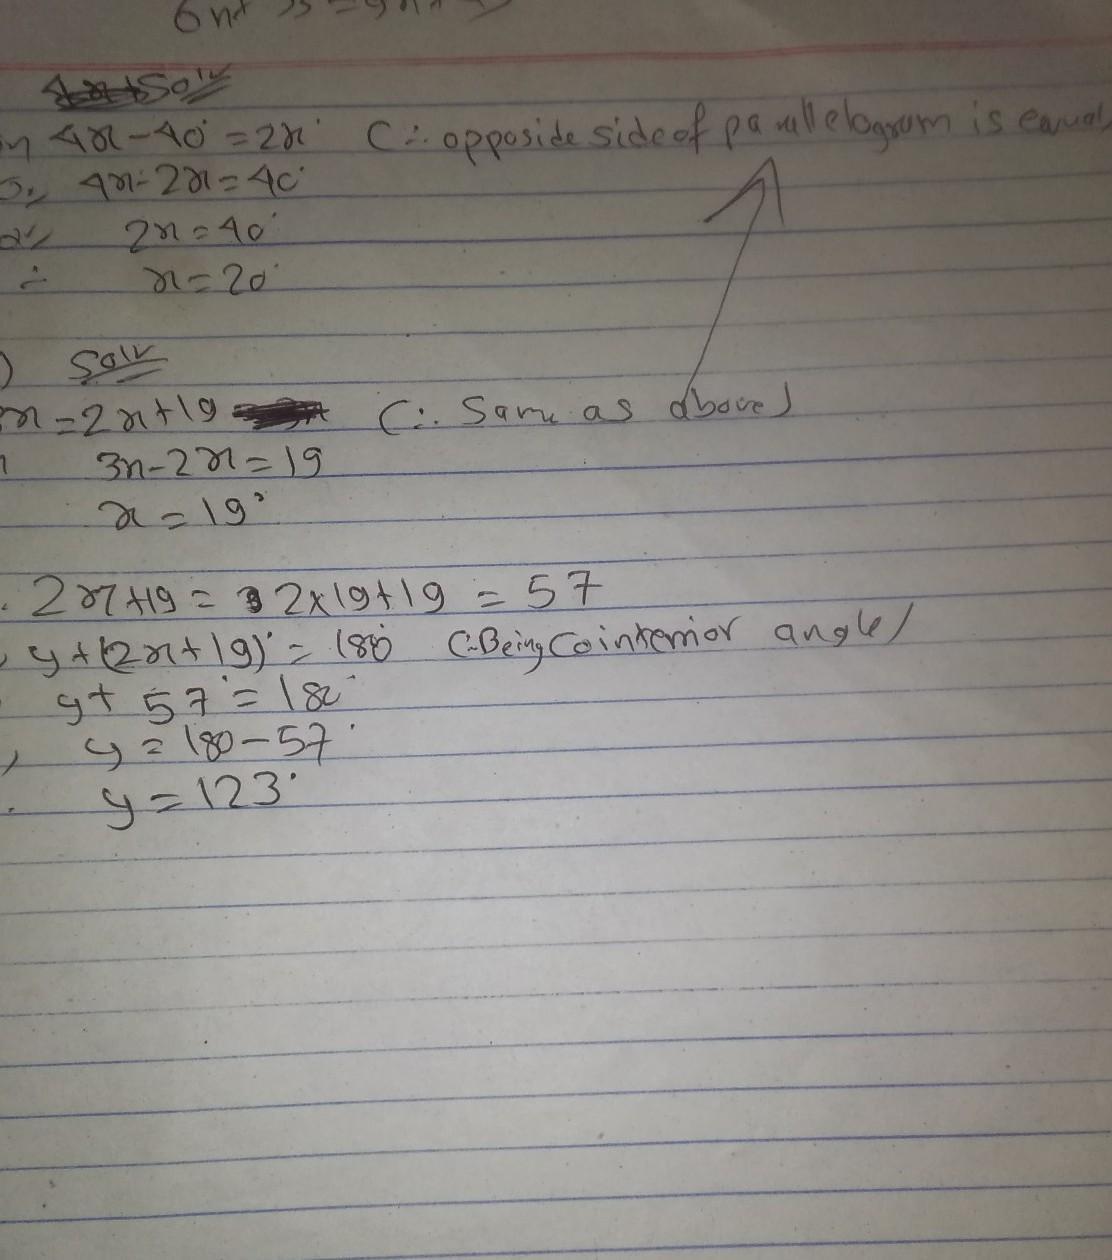 Solⁿ
4x - 40° = 2x° (∵ opposide side of parallelogram is equal
4x - 2x = 40°
or, 2x = 40°
∴ x = 20°
) Solⁿ
3x = 2x + 19 (∵ Same as above)
3x - 2x = 19
x = 19°
2x + 19 = 2 x 19 + 19 = 57
y + (2x + 19)° = 180° (∵ Being Co interrior angle)
y + 57° = 180°
, y = 180 - 57°
y = 123°